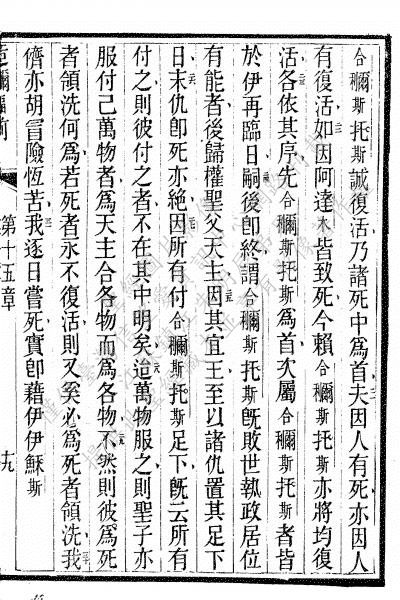 合彌斯托斯誠復活乃諸死中爲首夫因人有死亦因人
有復活如因阿達木皆致死今賴合彌斯托斯亦將均復
活各依其序先合彌斯托斯爲首次屬合彌斯托斯者皆
於伊再臨日嗣後卽終謂合彌斯托斯旣敗世執政居位
有能者後歸權聖父天主因其宜王至以諸仇置其足下
日末仇卽死亦絶因所有付合彌斯托斯足下旣云所有
付之則彼付之者不在其中明矣迨萬物服之則聖子亦
服付己萬物者爲天主合各物而爲各物不然則彼爲死
者領洗何爲若死者永不復活則又奚必爲死者領洗我
儕亦胡冒險恆苦我逐日嘗死實卽藉伊伊穌斯
第十五章
十九